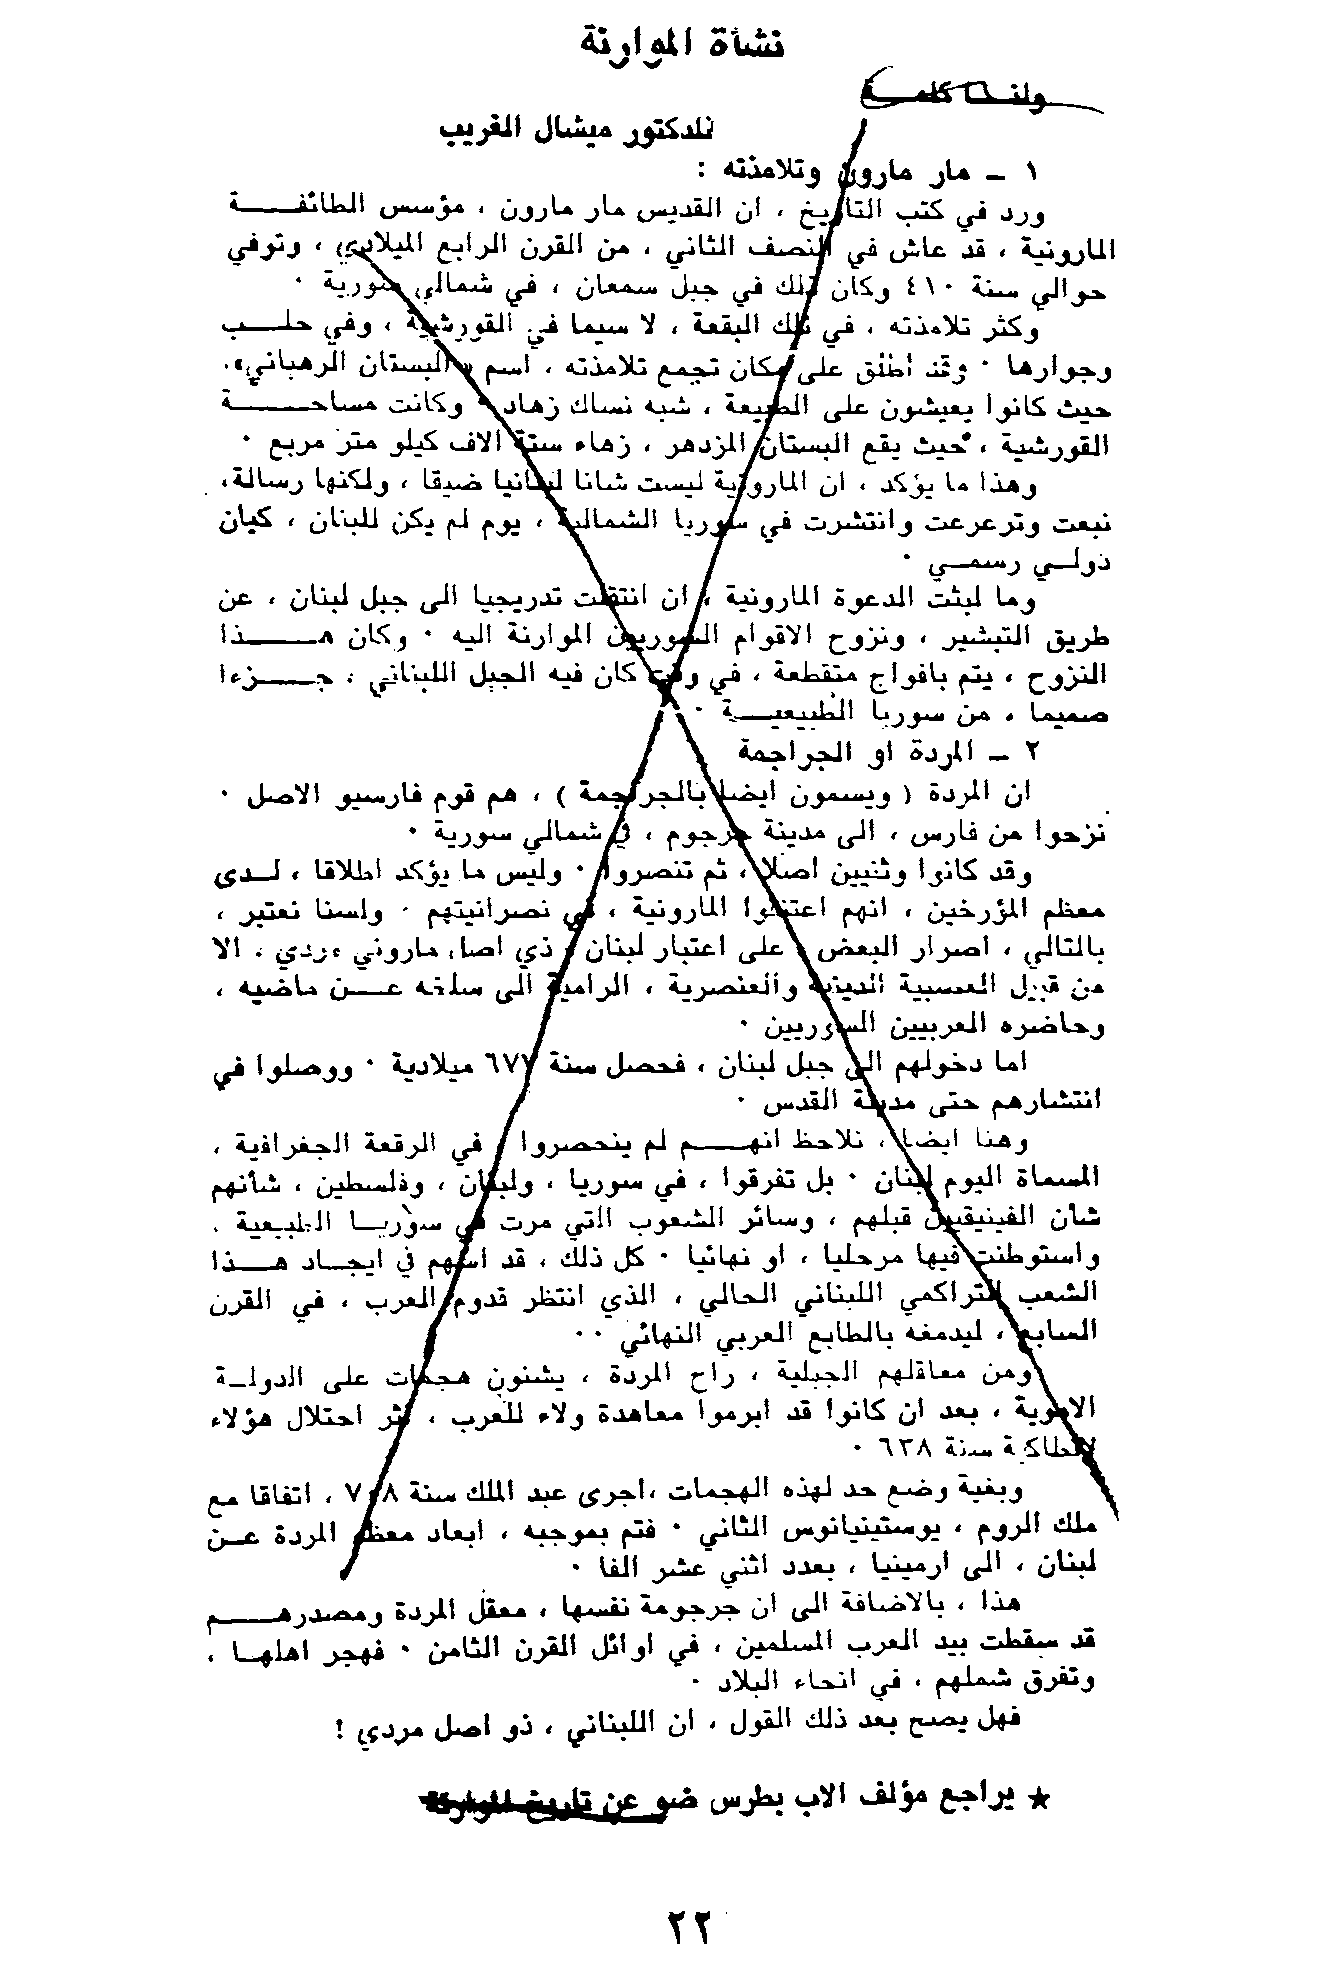 نشأة الموارنة
ولنا كلمة
للدكتور ميشال الغريب
١ – مار مارون وتلامذته :
ورد في كتب التاريخ ، ان القديس مار مارون ، مؤسس الطائفة
المارونية ، قد عاش في النصف الثاني ، من القرن الرابع الميلادي ، وتوفي
حوالي سنة ٤١٠ وكان ذلك في جبل سمعان ، في شمالي سورية ٠
وكثر تلامذته ، في تلك البقعة ، لا سيما في القورشية ، وفي حلب
وجوارها ٠ وقد اطلق على مكان تجمع تلامذته ، اسم « البستان الرهباني» ،
حيث كانوا يعيشون على الطبيعة ، شبه نساك زهاد ٠ وكانت مساحة
القورشية ، حيث يقع البستان المزدهر ، زهاء ستة الاف كيلو متر مربع ٠
وهذا ما يؤكد ، ان المارونية ليست شانا لبنانيا ضيقا ، ولكنها رسالة،
نبعت وترعرعت وانتشرت في سوريا الشمالية ، يوم لم يكن للبنان ، كيان
دولي رسمي ٠
وما لبثت الدعوة المارونية ، ان انتقلت تدريجيا الى جبل لبنان ، عن
طريق التبشير ، ونزوح الاقوام السوريين الموارنة اليه ٠ وكان هذا
النزوح ، يتم بافواج متقطعة ، في وقت كان فيه الجبل اللبناني ، جزءا
صميما ، من سوريا الطبيعية ٠
٢ – المردة او الجراجمة
ان المردة ( ويسمون ايضا بالجراجمة ) ، هم قوم فارسيو الاصل ٠
نزحوا من فارس ، الى مدينة جرجوم ، في شمالي سورية ٠
وقد كانوا وثنيين اصلا ، ثم تنصروا ٠ وليس ما يؤكد اطلاقا ، لدى
معظم المؤرخين ، انهم اعتنقوا المارونية ، في نصرانيتهم ٠ ولسنا نعتبر ،
بالتالي ، اصرار البعض ، على اعتبار لبنان ، ذي اصل ماروني مردي ، الا
من قبيل العصبية الدينية والعنصرية ، الرامية الى سلخه عن ماضيه ،
وحاضره العربيين السوريين ٠
اما دخولهم الى جبل لبنان ، فحصل سنة ٦٧٧ ميلادية ٠ ووصلوا في
انتشارهم حتى مدينة القدس ٠
وهنا ايضا ، نلاحظ انهم لم ينحصروا ، في الرقعة الجغرافية ،
المسماة اليوم لبنان ٠ بل تفرقوا ، في سوريا ، ولبنان ، وفلسطين ، شأنهم
شأن الفينيقيين قبلهم ، وسائر الشعوب التي مرت في سوريا الطبيعية ،
واستوطنت فيها مرحليا ، او نهائيا ٠ كل ذلك ، قد اسهم في ايجاد هذا
الشعب التراكمي اللبناني الحالي ، الذي انتظر قدوم العرب ، في القرن
السابع ، ليدمغه بالطابع العربي النهائي ٠٠
ومن معاقلهم الجبلية ، راح المردة ، يشنون هجمات على الدولة
الاموية ، بعد ان كانوا قد ابرموا معاهدة ولاء للعرب ، اثر احتلال هؤلاء
لانطاكية سنة ٦٣٨ ٠
وبغية وضع حد لهذه الهجمات ،اجرى عبد الملك سنة ٧٠٨ ، اتفاقا مع
ملك الروم ، يوستينيانوس الثاني ٠ فتم بموجبه ، ابعاد معظم المردة عن
لبنان ، الى ارمينيا ، بعدد اثني عشر الفا ٠
هذا ، بالاضافة الى ان جرجومة نفسها ، معقل المردة ومصدرهم
قد سقطت بيد العرب المسلمين ، في اوائل القرن الثامن ٠ فهجر اهلها ،
وتفرق شملهم ، في انحاء البلاد ٠
فهل يصح بعد ذلك القول ، ان اللبناني ، ذو اصل مردي !
★ يراجع مؤلف الاب بطرس ضو عن تاريخ الموارنة
٢٢